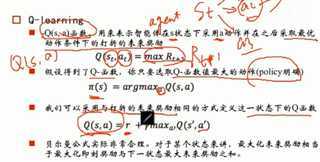 Q-learning
agent
Q(s,a)函数，用来表示智能体在s状态下采用a动作并在之后采取最优
动作条件下的打折的未来奖励
Q(s,a)
Q(st,at)= maxRt+1
Rt+1
假设得到了Q-函数，你只要选取Q-函数值最大的动作(policy明确)
π(s) = argmaxaQ(s,a)
我们可以采用与打折的未来奖励相同的方式定义这一状态下的Q函数
Q(s,a) = r + γmaxa,Q(s',a')
贝尔曼公式实际非常合理。对于某个状态来讲，最大化未来奖励相当
于最大化即刻奖励与下一状态最大未来奖励之和。